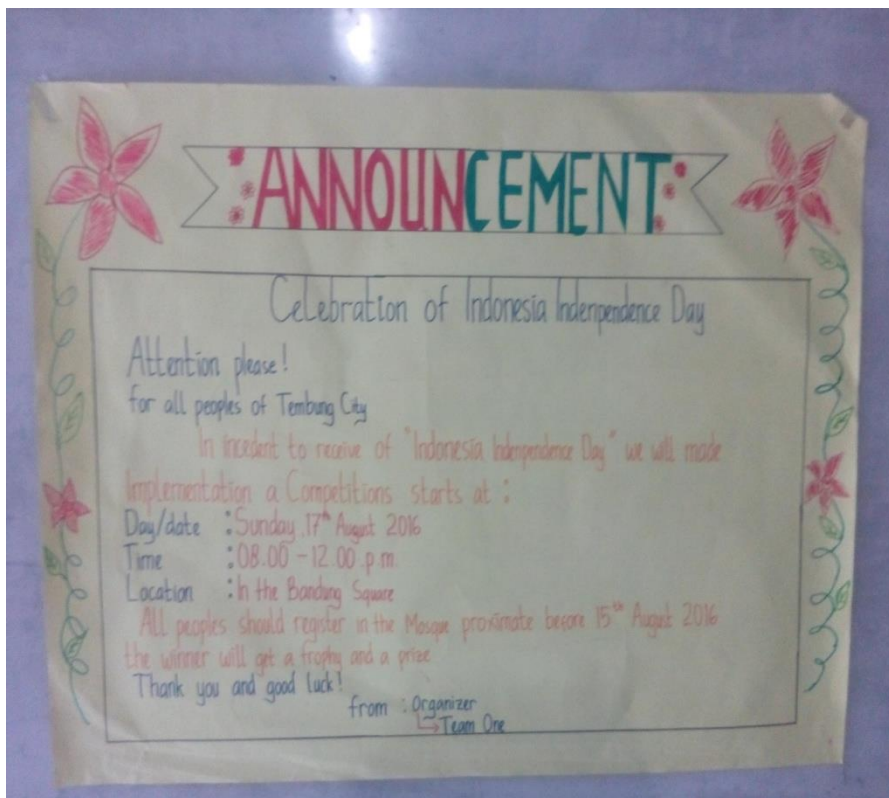 ANNOUNCEMENT
Celebration of Indonesia Indenpendence Day
Attention please!
for all peoples of Tembung City
In incedent to receive of "Indonesia Indenpendence Day" we will made
Implementation a Competitions starts at :
Day/date : Sunday, 17th August 2016
Time : 08.00 - 12.00 p.m
Location : In the Bandung Square
All peoples should register in the Mosque proximate before 15th August 2016
the winner will get a trophy and a prize
Thank you and good luck!
from : Organizer
Team One